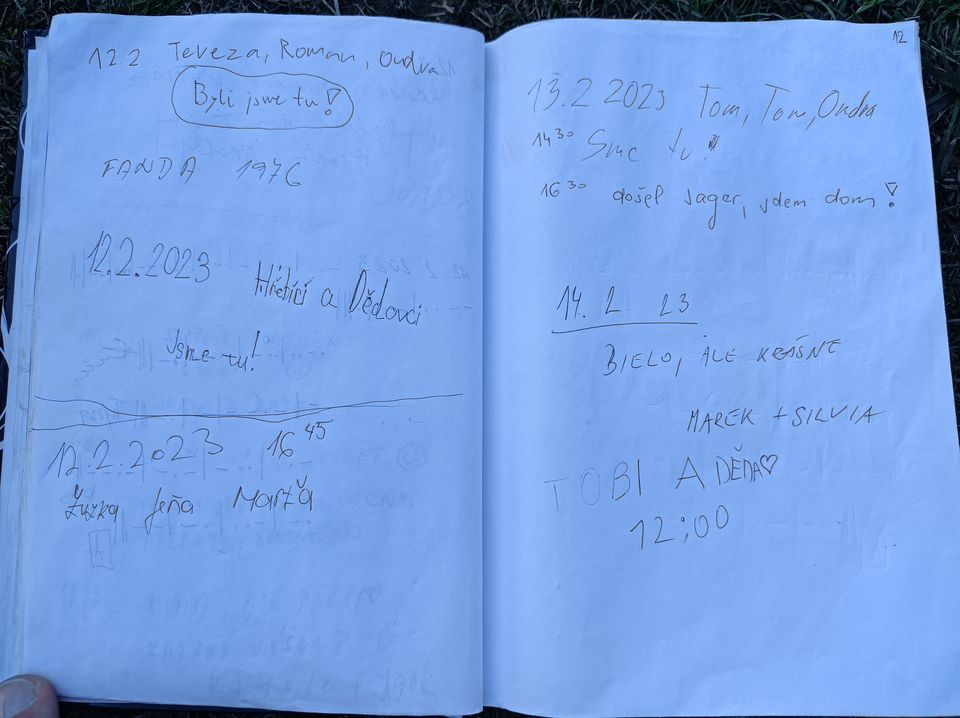 12.2 Tereza, Roman, Ondra
Byli jsme tu!
FANDA 1976
12.2.2023 Hřetící a Dědovci
Jsme tu!
12.2.2023 16 45
Zuzka Jeňa Marťa
12
13.2 2023 Tom, Tom, Ondra
14 30 Sme tu!
16 30 došel Jager, jdem dom!
14. 2 23
BIELO, ALE KRÁSNE
MAREK + SILVIA
TOBI A DĚDA♡
12:00